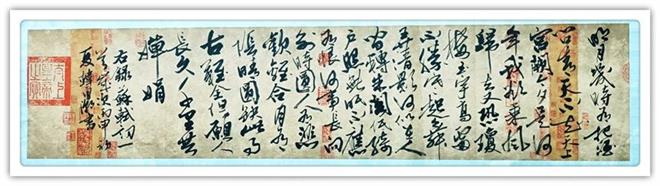 明月幾時有把酒
問青天不知天上
宮闕今夕是何
年我欲乘風
歸去又恐瓊
樓玉宇高處
不勝寒起舞
弄清影何似在人
間轉朱閣低綺
戶照無眠不應
有恨何事長向
別時圓人有悲
歡離合月有
陰晴圓缺此事
古難全但願人
長久千里共
嬋娟
右錄蘇軾詞一
首歲次丙申初
夏書